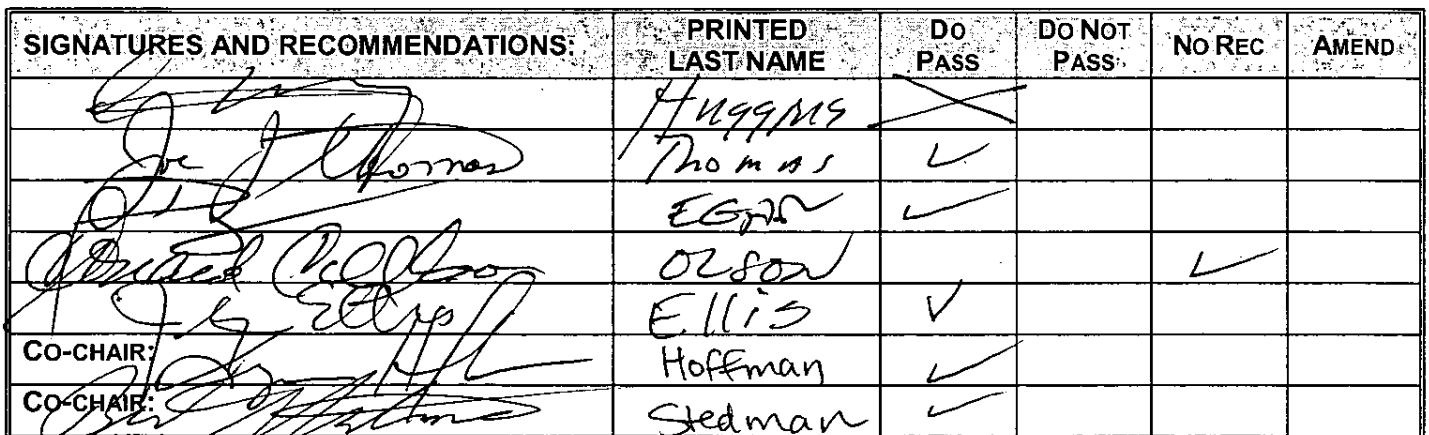 SIGNATURES AND RECOMMENDATIONS: PRINTED LAST NAME DO PASS DO NOT PASS NO REC AMEND
Huggins X
Joe J Thomas Thomas ✓
EGAN ✓
Donald C Olson OLSON ✓
Johnny Ellis Ellis ✓
CO-CHAIR: Lyman Hoffman ✓
CO-CHAIR: Bert Stedman Stedman ✓